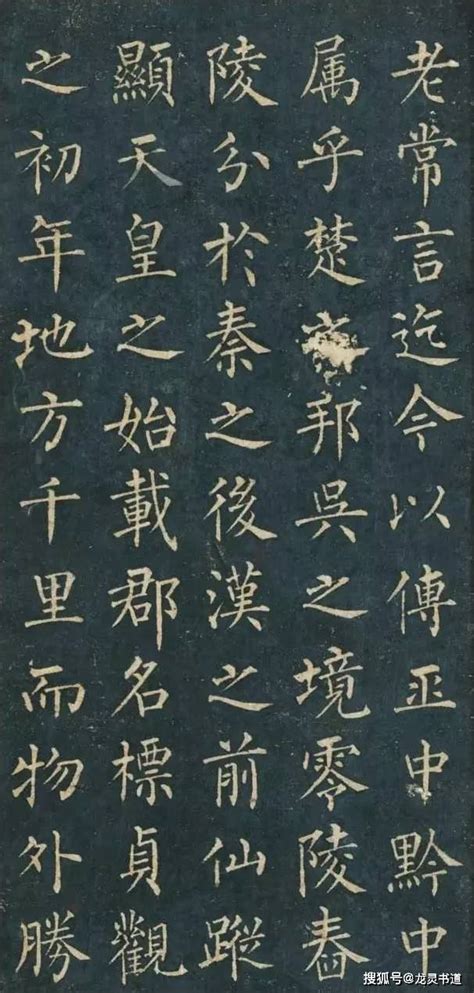 老常言迄今以傳巫中黔中
属乎楚邦吳之境零陵舂
陵分於秦之後漢之前仙蹤
顯天皇之始載郡名標貞觀
之初年地方千里而物外勝
搜狐号@龙灵书道